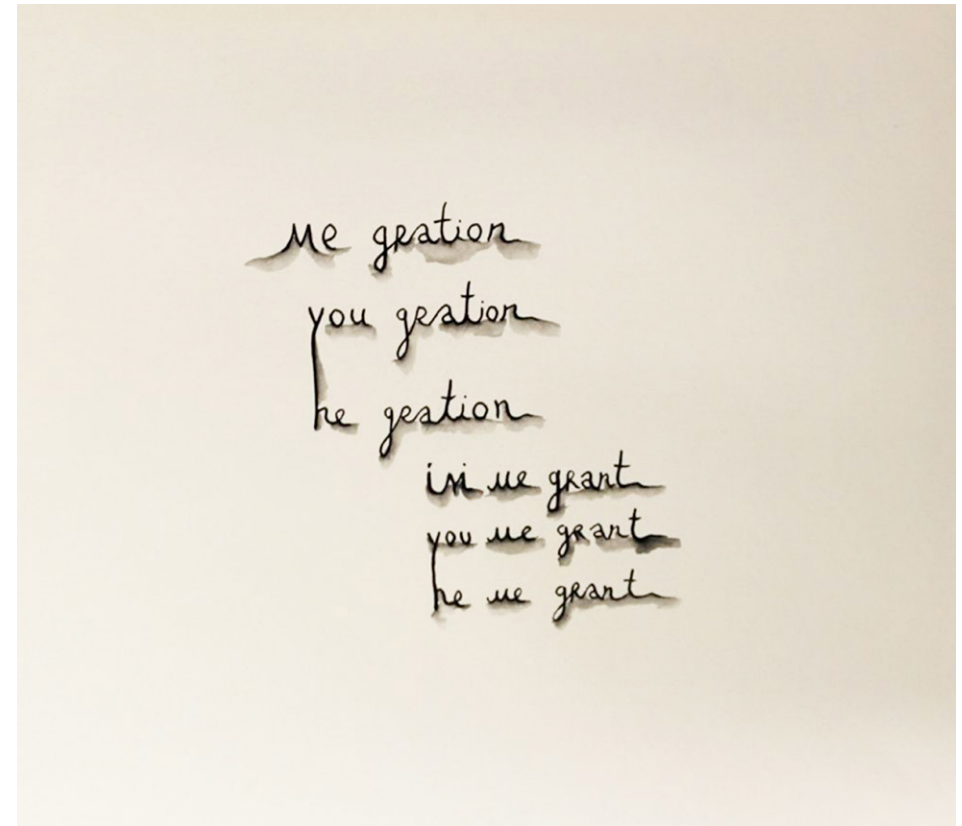 Me gration
you gration
he gration
im me grant
you me grant
he me grant